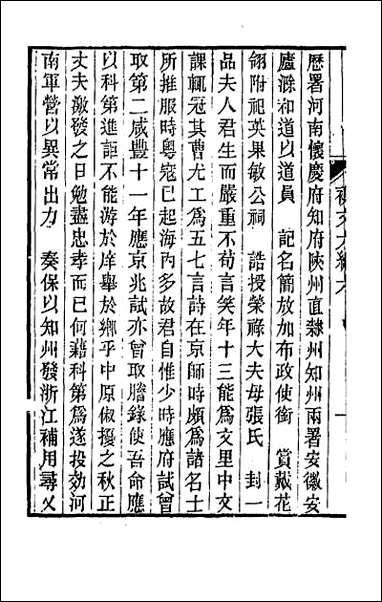 歷署河南懷慶府知府陝州直隸州知州兩署安徽安
廬滁和道以道員　記名簡放加布政使銜　賞戴花
翎附祀英果敏公祠　誥授榮祿大夫母張氏　封一
品夫人君生而嚴重不茍言笑年十三能爲文里中文
課輒冠其曹尤工爲五七言詩在京師時頗爲諸名士
所推服時粵寇已起海內多故君自惟少時應府試曾
取第二咸豐十一年應京兆試亦曾取謄錄使吾命應
以科第進詎不能游於庠舉於鄉乎中原俶擾之秋正
丈夫激發之日勉盡忠孝而已何藉科第爲遂投効河
南軍營以異常出力　奏保以知州發浙江補用尋乂